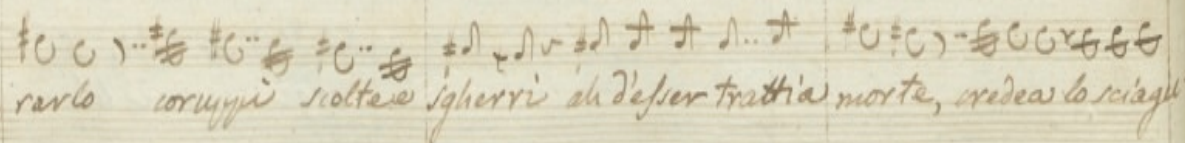 rarlo corruppi scolte e sgherri ah d'esser tratti a morte, credea lo sciagu